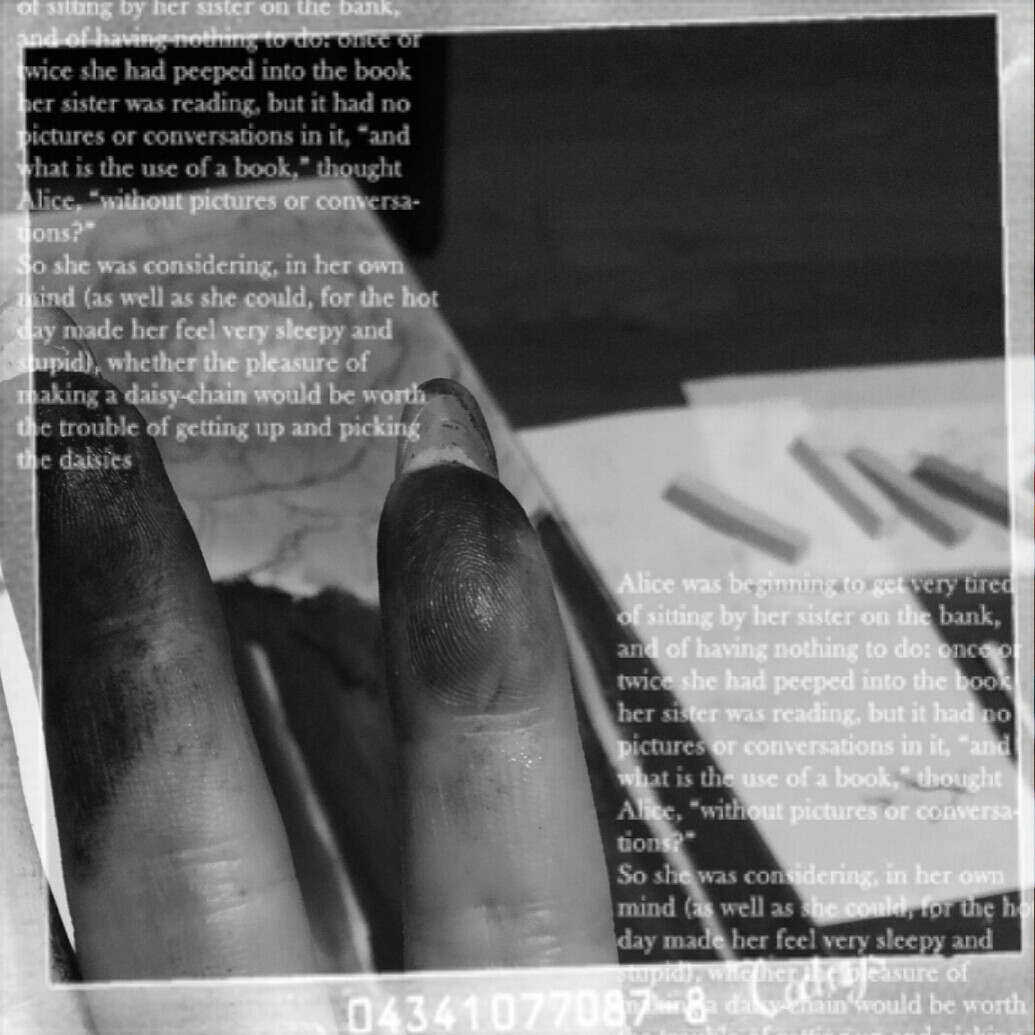 of sitting by her sister on the bank,
and of having nothing to do: once or
twice she had peeped into the book
her sister was reading, but it had no
pictures or conversations in it, “and
what is the use of a book,” thought
Alice, “without pictures or conversa-
tions?”
So she was considering, in her own
mind (as well as she could, for the hot
day made her feel very sleepy and
stupid), whether the pleasure of
making a daisy-chain would be worth
the trouble of getting up and picking
the daisies
Alice was beginning to get very tired
of sitting by her sister on the bank,
and of having nothing to do: once or
twice she had peeped into the book
her sister was reading, but it had no
pictures or conversations in it, “and
what is the use of a book,” thought
Alice, “without pictures or conversa-
tions?”
So she was considering, in her own
mind (as well as she could, for the ho
day made her feel very sleepy and
stupid), whether the pleasure of
making a daisy-chain would be worth
04341077087-8